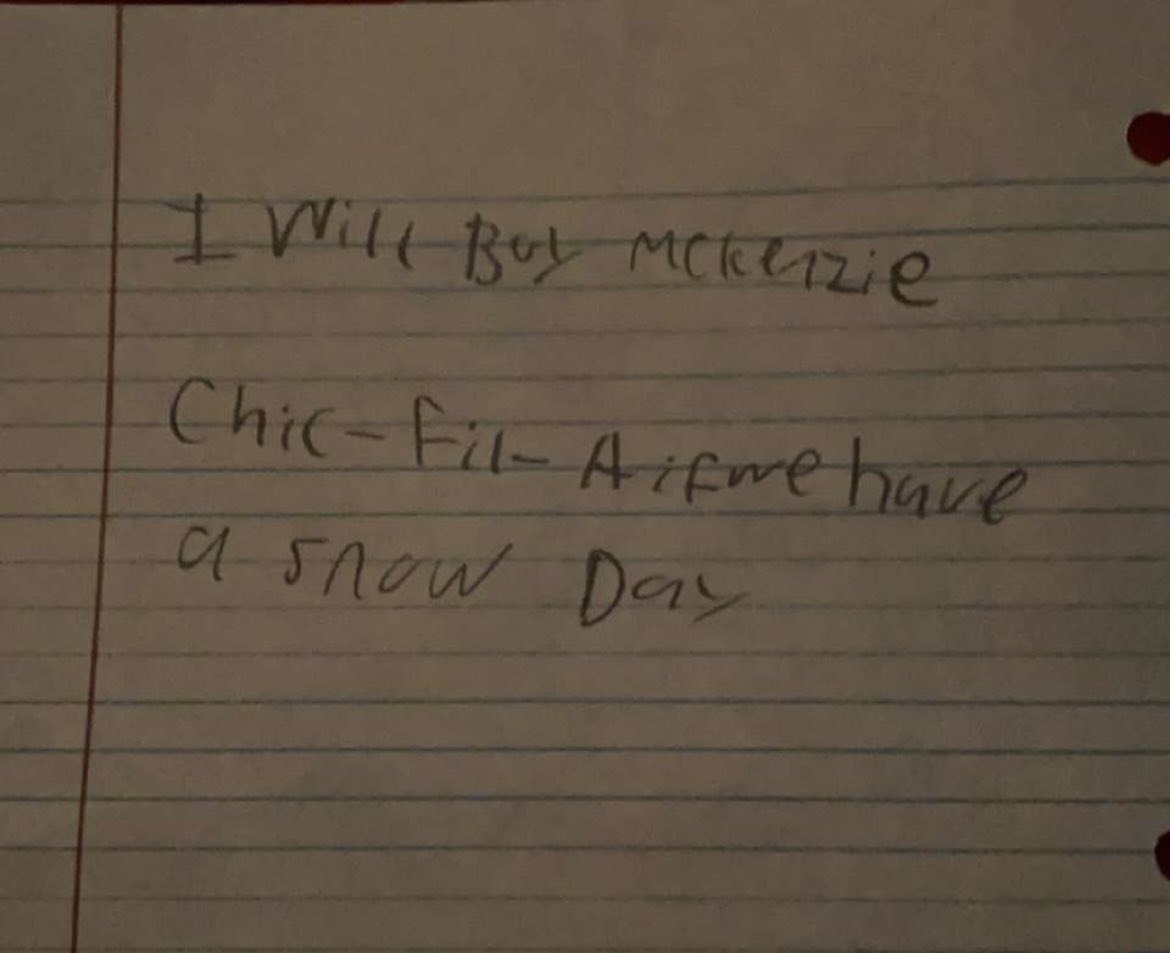 I Will Buy Mckenzie
Chic-Fil-A if we have
a snow Day